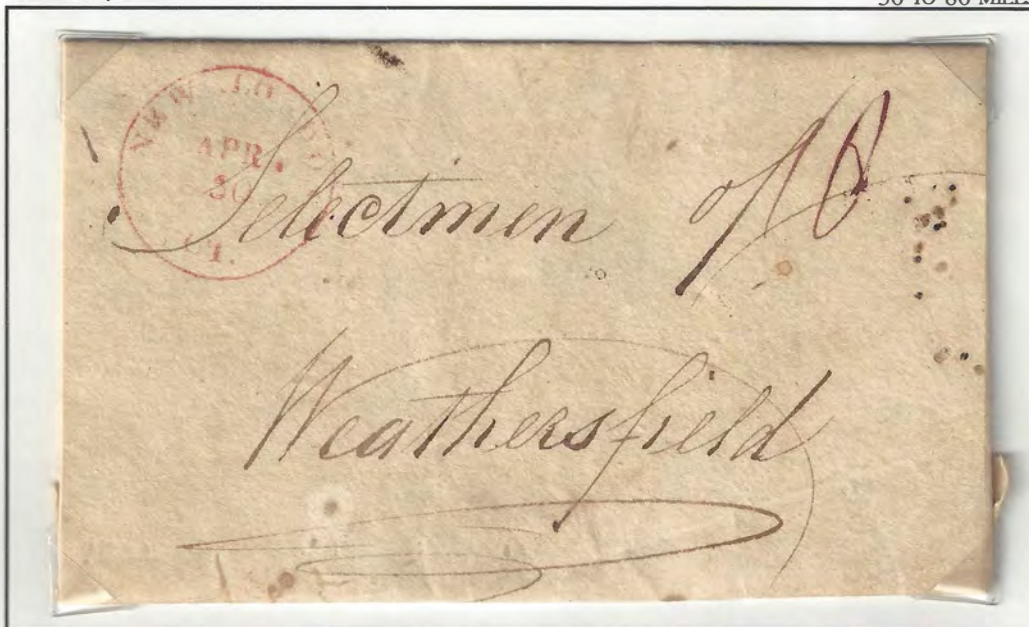 30 TO 80 MILES
NEW LO
APR.
Selectmen of 10
Weathersfield